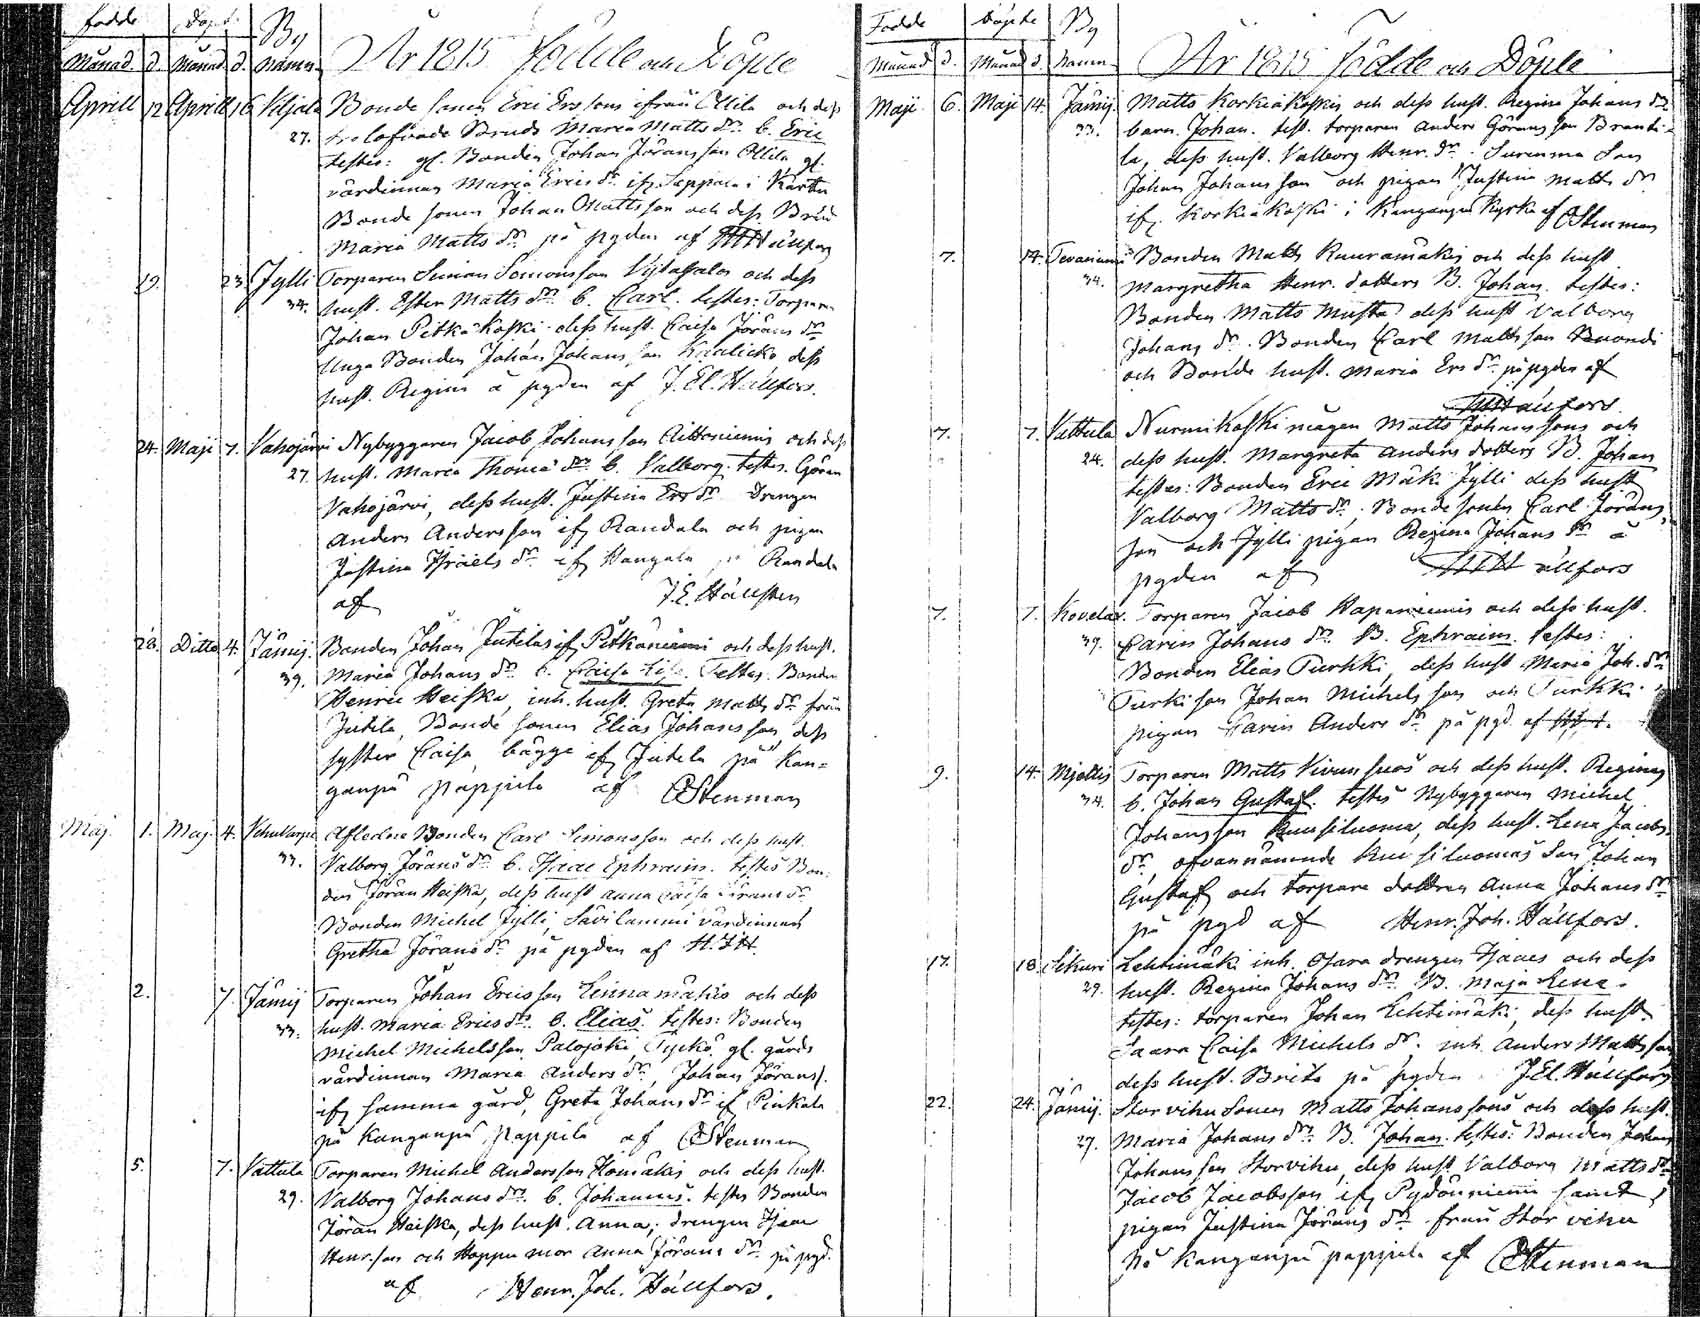 födde Döpt. By
Månad. d. Månad. d. namn. År 1815 Födde och Döpte
Aprill 12 Aprill 16 Kiljala Bonde sonen Eric Ers sons ifrån Ollila och dess
27. trolofvade Brud Maria Matts dr. b. Eric
testes: gl. Bonden Johan Jöransson Ollila gl.
värdinnan Maria Erics dr. ifr. Seppälä i Kärtu
Bonde sonen Johan Mattsson och dess Brud
Maria Matts dr. på pgden af HHHällfors
19. 23 Jylli Torparen Simon Simonsson och dess
34. hust. Ester Matts dr. b. Carl. testes: Torparen
Johan Pitkäkoski dess hust. Caisa Jörans dr
Unga Bonden Johan Johansson dess
hust. Regina å pgden af J. El. Hällfors.
24. Maji 7. Vahojärvi Nybyggaren Jacob Johansson Aittoniemis och dess
27. hust. Maria Thomæ dr. b. Valborg. testes. Göran
Vahojärvi, dess hust. Justina Ers dr. Drengen
Anders Andersson ifr. Randala och pigan
Justina Israels dr. ifr. Hangala på Randala
af J. E. Hällfors
28. Ditto 4. Jämij. Bonden Johan Jutilas ifr. Pitkäniemi och dess hust.
39. Maria Johans dr. b. Caisa Lisa. Testes. Bonden
Henric Heiska, inh. hust. Greta Matts dr från
Jutila, Bonde sonen Elias Johansson, dess
syster Caisa, bägge ifr. Jutila på Kan=
ganpä pappila af CStenman
Maj. 1. Maj. 4. Afledne Bonden Carl Simonsson och dess hust.
33. Valborg Jörans dr. b. Isaac Ephraim. testes Bon-
den Jöran Heiska, dess hust Anna Caisa Jörans dr
Bonden Michel Jylli, Savilammi värdinnan
Gretha Jörans dr. på pgden af H. J. H.
2. 7. Jämij Torparen Johan Ericsson Linnamäkis och dess
33. hust. Maria Erics dr. b. Elias. testes: Bonden
Michel Michelsson Palojoki, Tyckö gl. gårds
värdinnan Maria Anders dr, Johan Jörans s.
ifr. samma gård, Greta Johans dr. if. Pinkala
på Kanganpä pappila af CStenman
5. 7. Vattula Torparen Michel Andersson Homäkis och dess hust.
29. Valborg Johans dr. b. Johannes. testes Bonden
Jöran Heiska, dess hust. Anna; drengen Isaac
Henr. son och Hoppu mor Anna Jörans dr. på pgd.
af Henr. Joh. Hällfors.
Födde Döpte By
Månad d. Månad d. namn År 1815 Födde och Döpte
Maji 6. Maji 14. Jämij. Matts Korkiakoskis och dess hust. Regina Johans dr
33. barn. Johan. test. torparen Anders Göransson Branti-
la, dess hust. Valborg Henr. dr. Surinma Son
Johan Johansson och pigan Justina Matts dr
ifr. Korkiakoski i Kanganpä kyrka af CStenman
7. 14. Tevaniemi Bonden Matts Kuuramäkis och dess hust
34. Margretha Henr. dotters B. Johan. testes:
Bonden Matts Musta dess hust Valborg
Johans dr. Bonden Carl Mattsson
och Bonde hust. Maria Ers dr. på pgden af
HHHällfors.
7. 7. Vattula Nurmikoski mågen Matts Johanssons och
24. dess hust. Margreta Anders dotters B. Johan
testes: Bonden Eric Mäki Jylli dess hust
Valborg Matts dr, Bonde sonen Carl Jörans
son och Jylli pigan Regina Johans dr å
pgden af HHHällfors
7. 7. Kovelax. Torparen Jacob Hapaniemis och dess hust.
39. Carin Johans dr. B. Ephraim. testes:
Bonden Elias Turkki, dess hust Maria Joh. dr
Turki son Johan Michelsson och Turkki
pigan Carin Anders dr. på pgd. af H. J. H.
9. 14. Mjettis Torparen Matts Vivunsuos och dess hust. Reginas
34. b. Johan Gustaf. testes Nybyggaren Michel
Johansson Kuusiluoma, dess hust. Lena Jacobs
dr. ofvannämnde Kuusiluomas Son Johan
Gustaf och torpare dottren Anna Johans dr.
på pgd af Henr. Joh. Hällfors.
17. 18. Sikuri Lehtimäki inh. drengen Isaacs och dess
29. hust. Regina Johans dr. B. Maja Lena.
testes: torparen Johan Lehtimäki, dess hust
Saara Caisa Michels dr. inh. Anders Mattsson
dess hust. Brita på pgden J. El. Hällfors
22. 24. Jämij. Storvihu Sonen Matts Johanssons och dess hust.
27. Maria Johans dr. B. Johan. testes: Bonden Johan
Johansson Storvihu, dess hust. Valborg Matts dr
Jacob Jacobsson ifr. Pydänniemi samt
pigan Justina Jörans dr. från Storvihu
På Kanganpä pappila af CStenman